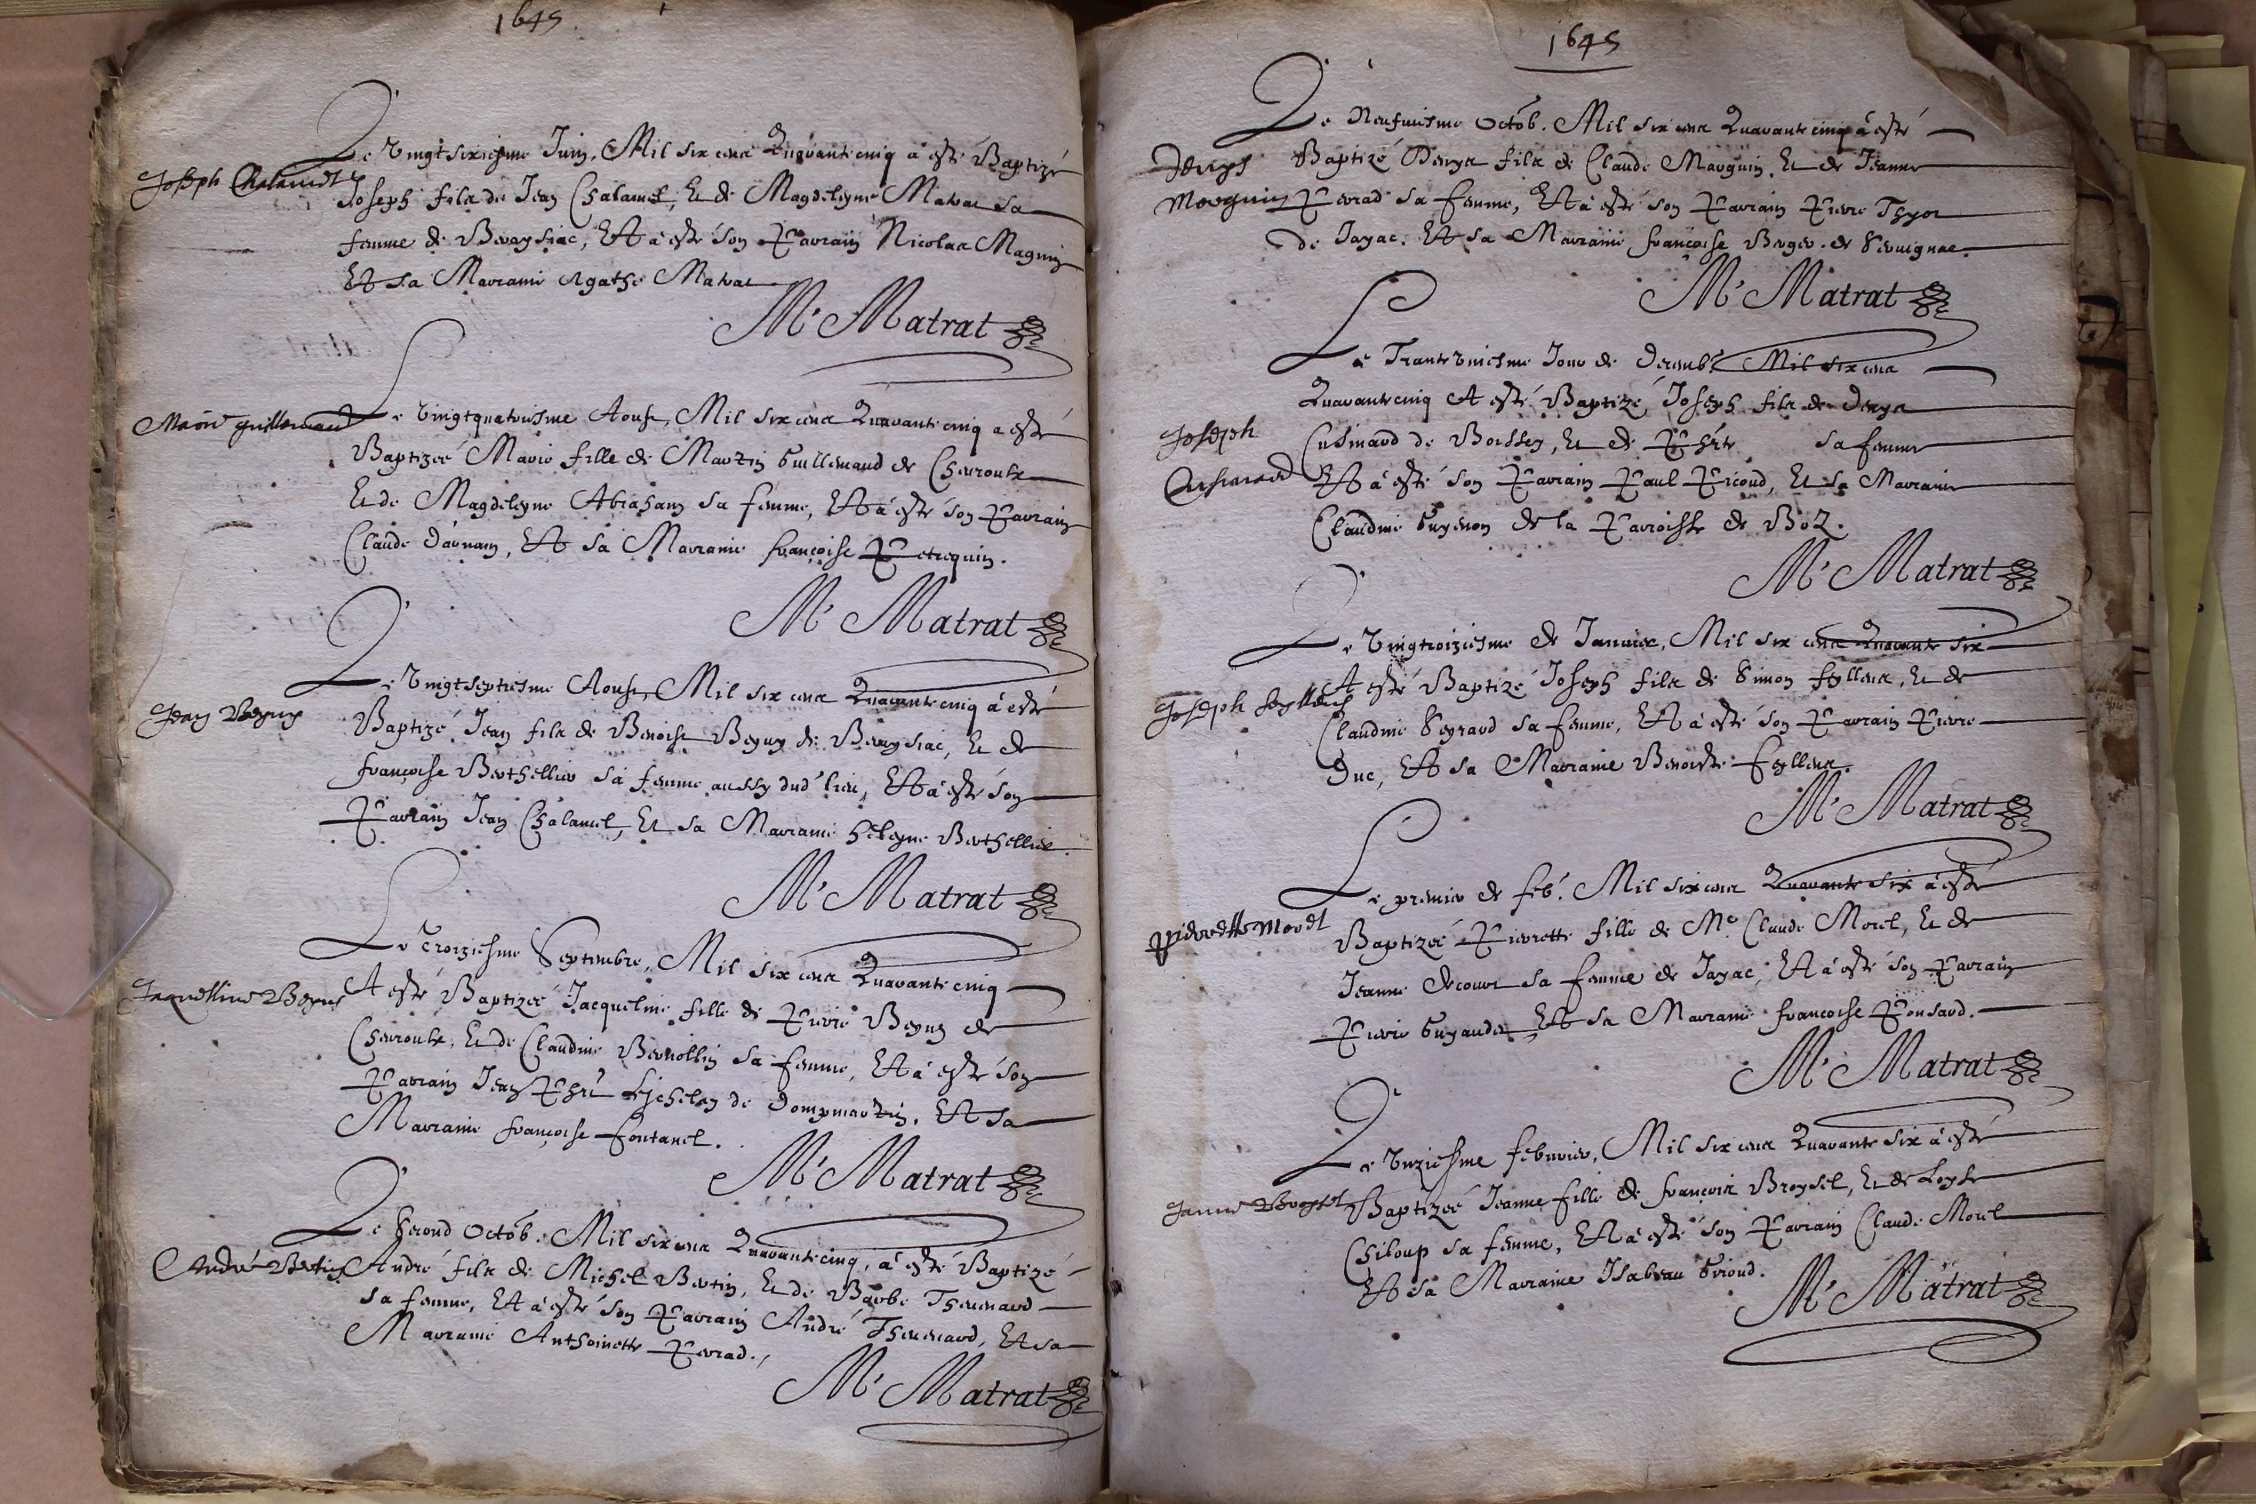 1645
Le vingtsixiesme Juin, Mil six cens Quarante cinq a esté Baptizé
Joseph Chalamel
Joseph fils de Jean Chalamel, Et de Magdeleyne Matrat sa
femme de Bereysiac, Et a esté son Parrain Nicolas Maguin
Et sa Marraine Agathe Matrat
M.e Matrat
Le vingtquatriesme Aoust, Mil six cens Quarante cinq a esté
Marie guillemaud
Baptizee Marie fille de Martin Guillemaud de Chevroulx
Et de Magdeleyne Abraham sa femme, Et a esté son Parrain
Claude Darnam, Et sa Marraine françoise Petrequin.
M.e Matrat
Le vingtseptiesme Aoust, Mil six cens Quarante cinq a esté
Jean Beguy
Baptizé Jean fils de Benoist Beguy de Bereysiac, Et de
françoise Berthellier sa femme aussy dud' lieu, Et a esté son
Parrain Jean Chalamel, Et sa Marraine heleyne Berthellier.
M.e Matrat
Le Troiziesme Septembre, Mil six cens Quarante cinq
Jaquelline Beguy
A esté Baptizeé Jacqueline fille de Pierre Beguy de
Chevroulx, Et de Claudine Bernollin sa femme, Et a esté son
Parrain Jean Ph' de Dompmartin, Et sa
Marraine françoise fontanel.
M.e Matrat
Le Second Octob. Mil six cens Quarante cinq, a esté Baptizé
André Bertin
André fils de Michel Bertin, Et de Barbe Thevenard
sa femme, Et a esté son Parrain André Thevenard, Et sa
Marraine Anthoinette Perrad.
M.e Matrat
1645
Le Neufviesme Octob. Mil six cens Quarante cinq a esté
Denys
Baptizé Denys fils de Claude Mauguin, Et de Jeanne
Mauguin
Perrad sa femme, Et a esté son Parrain Pierre
de Jayac. Et sa Marraine françoise Broger de Servignac.
M.e Matrat
Le Trante uniesme Jour de Decemb. Mil six cens
Quarante cinq A esté Baptizé Joseph fils de Denys
Joseph
Cusinard de Boissey, Et de Ph' sa femme
Cusinard
Et a esté son Parrain Paul Picoud, Et sa Marraine
Claudine Guyenon de la Parroisse de Boz.
M.e Matrat
Le vingtroiziesme de Janvier, Mil six cens Quarante six
Joseph feyllens
A esté Baptizé Joseph fils de Simon feyllens, Et de
Claudine Seyraud sa femme, Et a esté son Parrain Pierre
Duc, Et sa Marraine Benoiste feyllens.
M.e Matrat
Le premier de feb. Mil six cens Quarante six a esté
pierrette Morel
Baptizeé Pierrette fille de M.e Claude Morel, Et de
Jeanne Decour sa femme de Jayac, Et a esté son Parrain
Pierre Guyaudet, Et sa Marraine françoise Ponsard.
M.e Matrat
Le unziesme febvrier, Mil six cens Quarante six a esté
Janne Broysel
Baptizeé Jeanne fille de françois Broysel, Et de Loyse
Chiloup sa femme, Et a esté son Parrain Claude Morel
Et sa Marraine Isabeau Grioud.
M.e Matrat